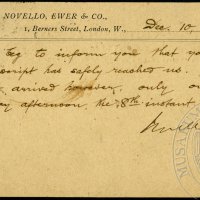 NOVELLO, EWER & CO.,
1, Berners Street, London, W., Dec. 10,
beg to inform you that yo
script has safely reached us.
arrived however, only on
afternoon, the 8th instant
MUSA